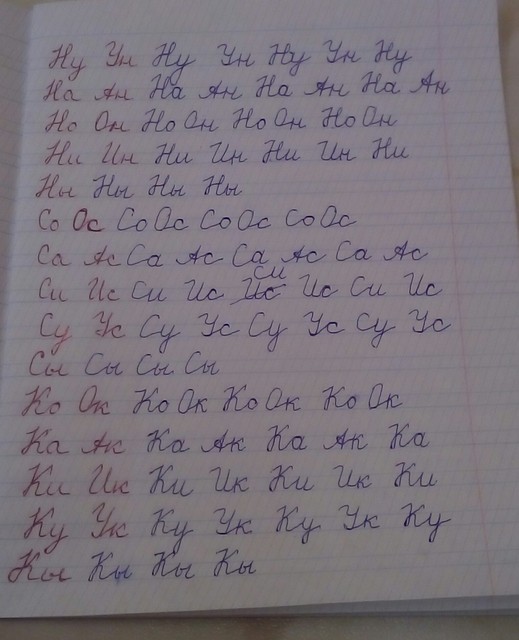 Ну Ун Ну Ун Ну Ун Ну
На Ан На Ан На Ан На Ан
Но Он Но Он Но Он Но Он
Ни Ин Ни Ин Ни Ин Ни
Ны Ны Ны Ны
Со Ос Со Ос Со Ос Со Ос
Са Ас Са Ас Са Ас Са Ас
Си
Си Ис Си Ис Ис Ис Си Ис
Су Ус Су Ус Су Ус Су Ус
Сы Сы Сы Сы
Ко Ок Ко Ок Ко Ок Ко Ок
Ка Ак Ка Ак Ка Ак Ка
Ки Ик Ки Ик Ки Ик Ки
Ку Ук Ку Ук Ку Ук Ку
Кы Кы Кы Кы